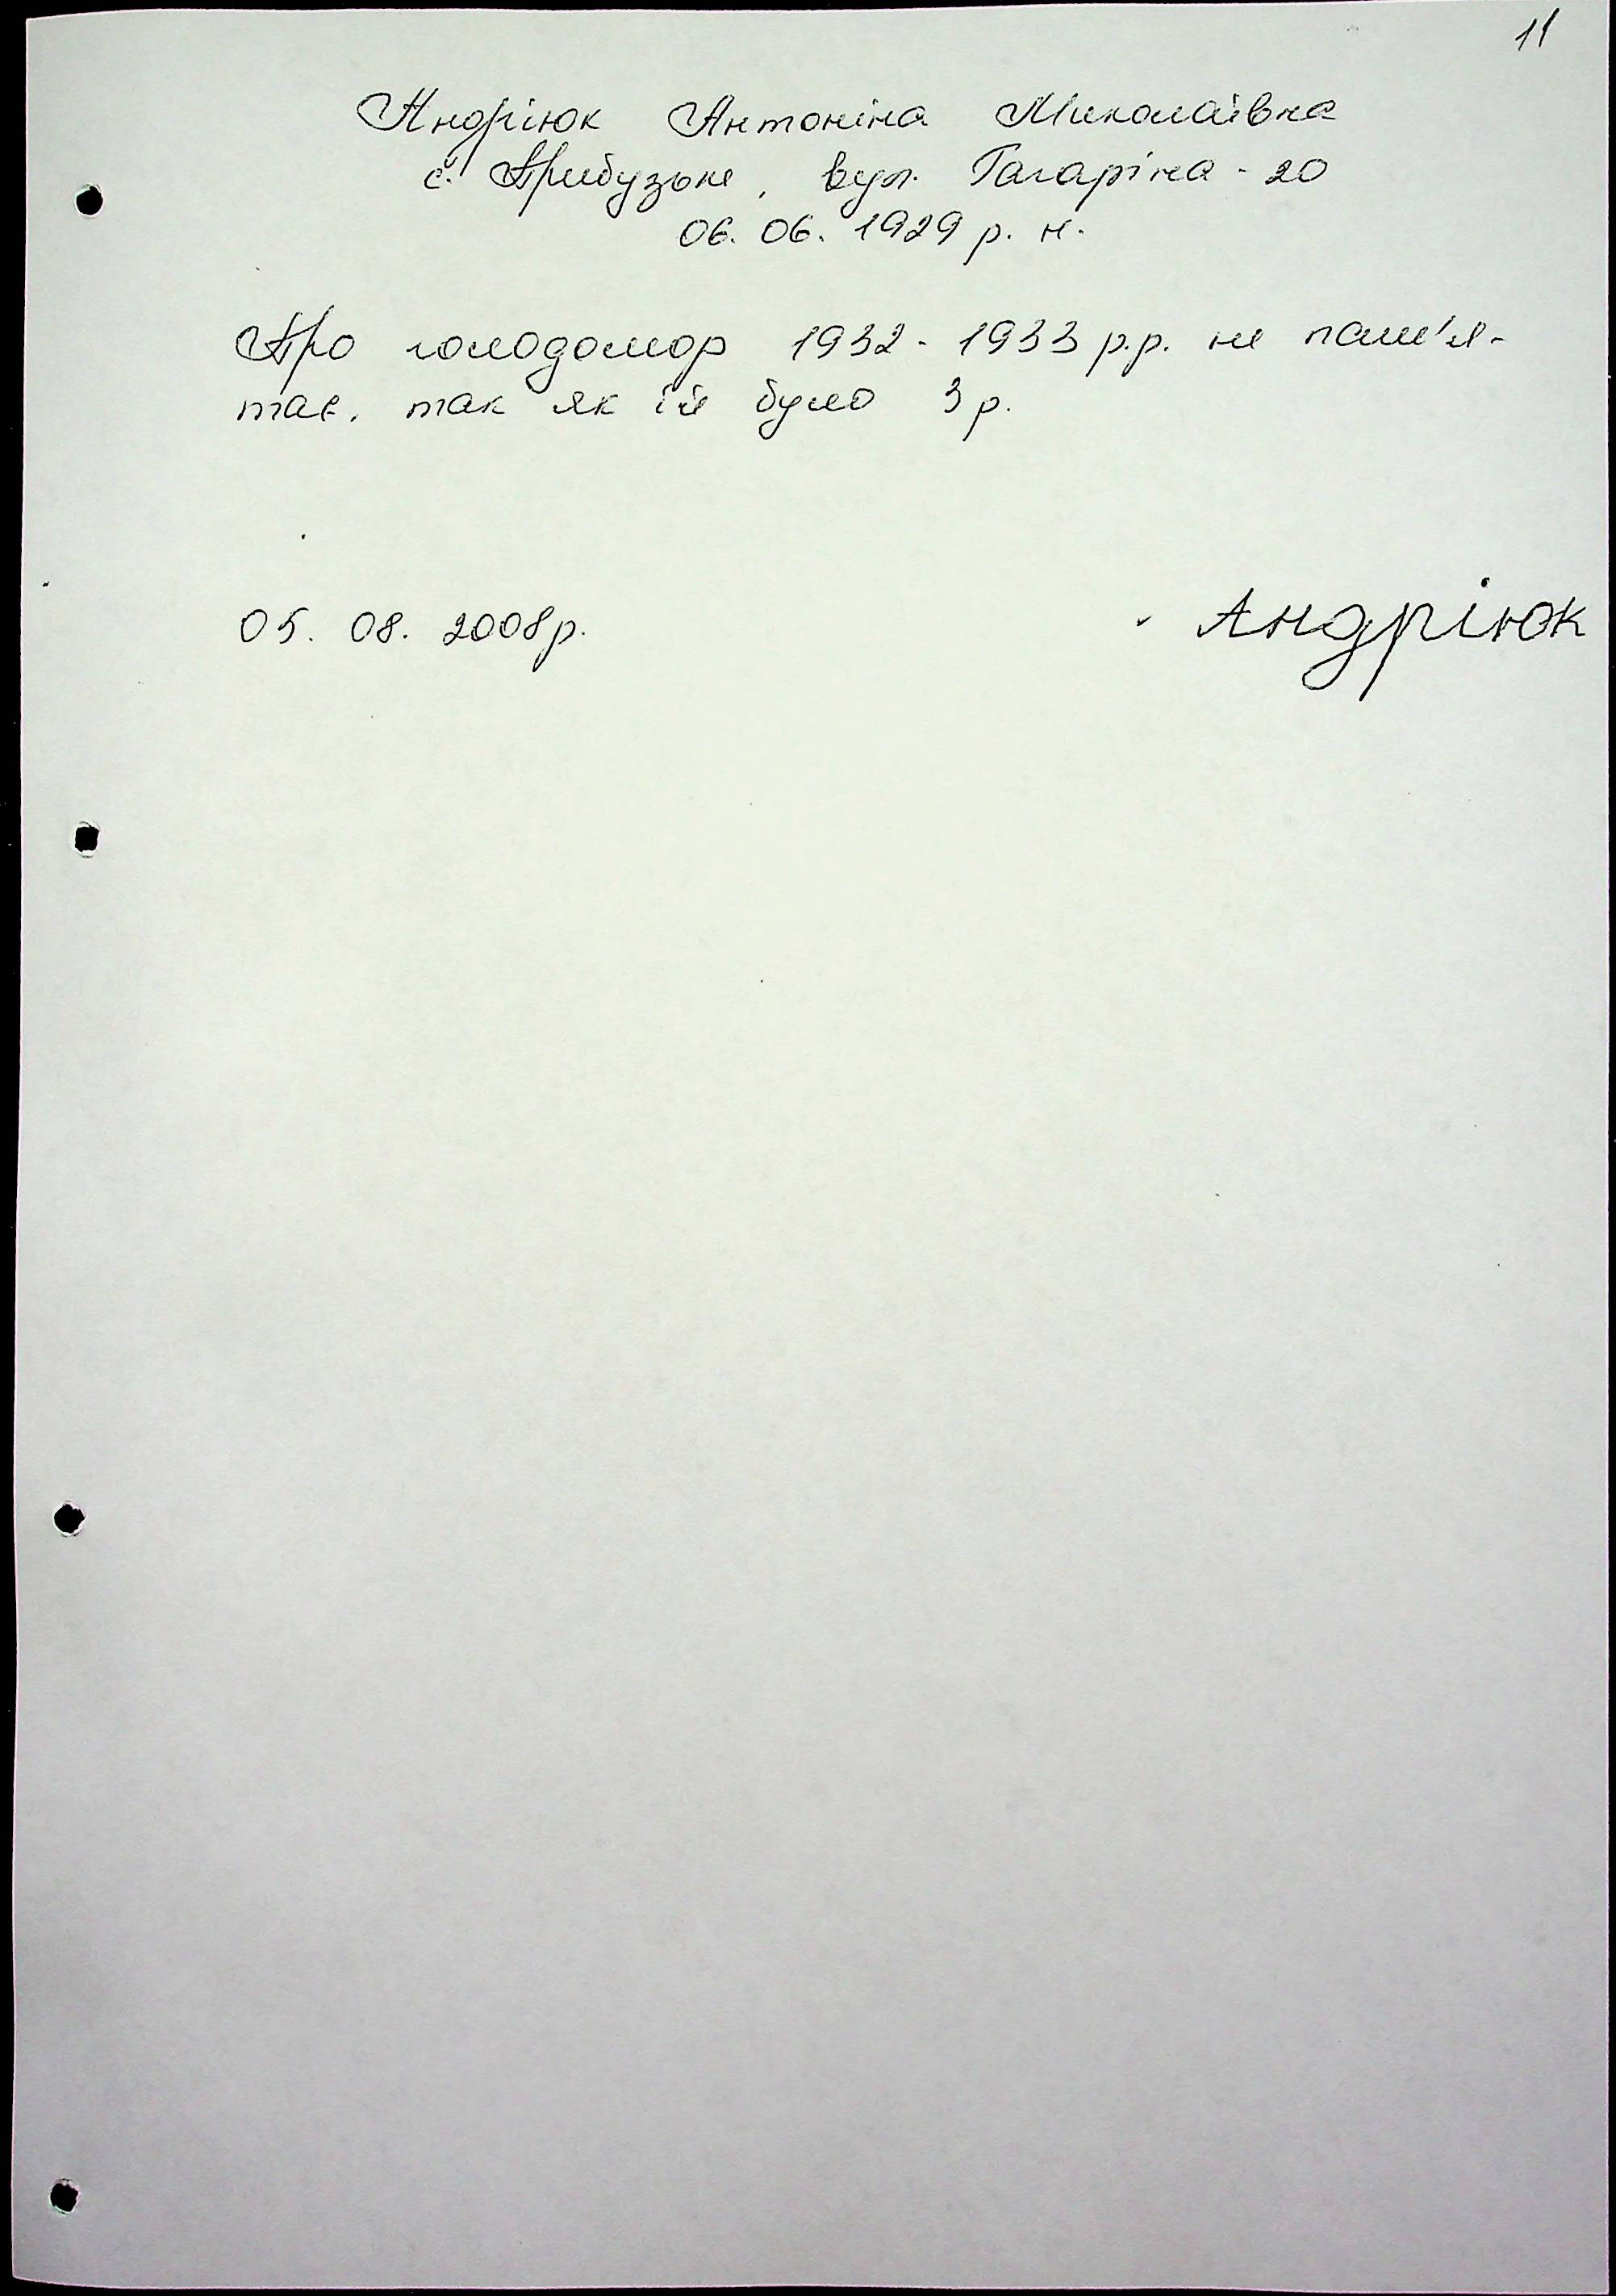 11
Андріюк Антоніна Миколаївна
с. Прибузьке, вул. Гагаріна - 20
06. 06. 1929 р. н.
Про голодомор 1932 - 1933 р.р. не пам'я-
тає, так як їй було 3 р.
05. 08. 2008р. Андріюк